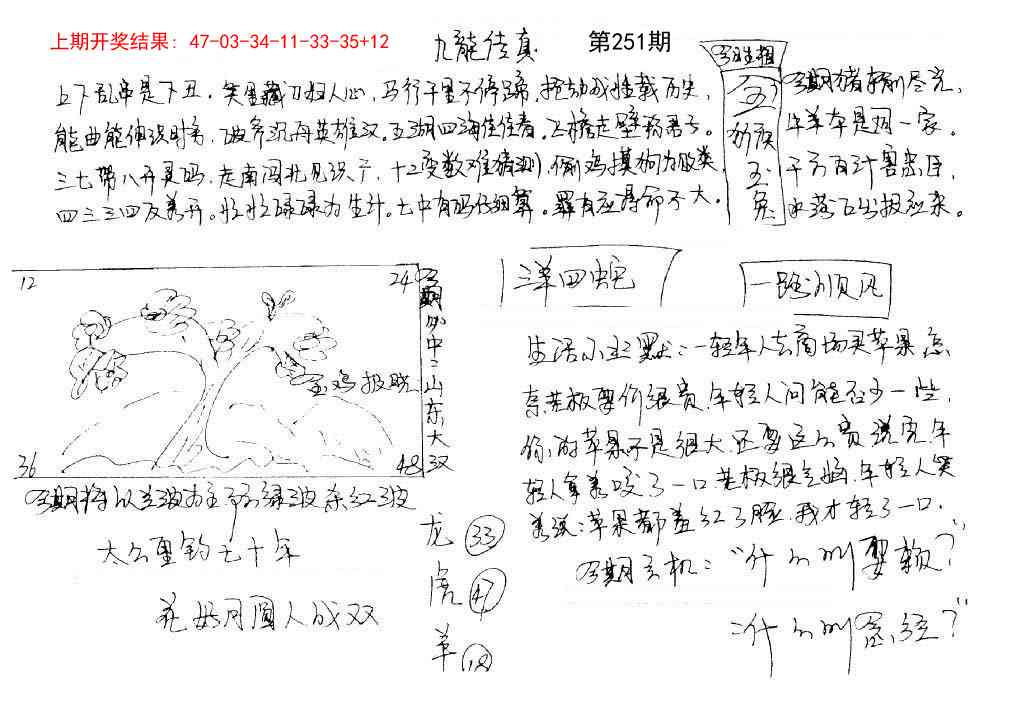 上期开奖结果: 47-03-34-11-33-35+12
九龙传真
第251期
上下乱串是下丑，笑里藏刀扫人心，马行千里不停蹄，
能曲能伸识时务，英雄汉。五湖四海佳佳春。飞檐走壁称君子。
三七带八开灵码，走南闯北见识广，十二变数难猜测，偷鸡摸狗为败类
四三三四及着开。忙忙碌碌为生计。七中有码仔细算。罪有应得命不大。
今期生相
五
玉
兔
今期猪转刚尽完，
牛羊本是同一家。
千方百计害忠臣，
水落石出报应来。
12
24
36
48
金鸡报晓
今期必中二山东大汉
洋四蛇
一路顺风
生活小幽默：一轻年人去商场买苹果，怎
奈老板要价很贵，年轻人问能否少一些，
你的苹果不是很大，还要这么贵，说完年
轻人拿着咬了一口，老板很气恼，年轻人笑
着说：苹果都羞红了脸，我才轻了一口。
今期玄机：“什么叫耍赖？”
：什么叫念经？”
绿波 红波
太公垂钓七十年
花好月圆人成双
龙 33
虎 47
羊